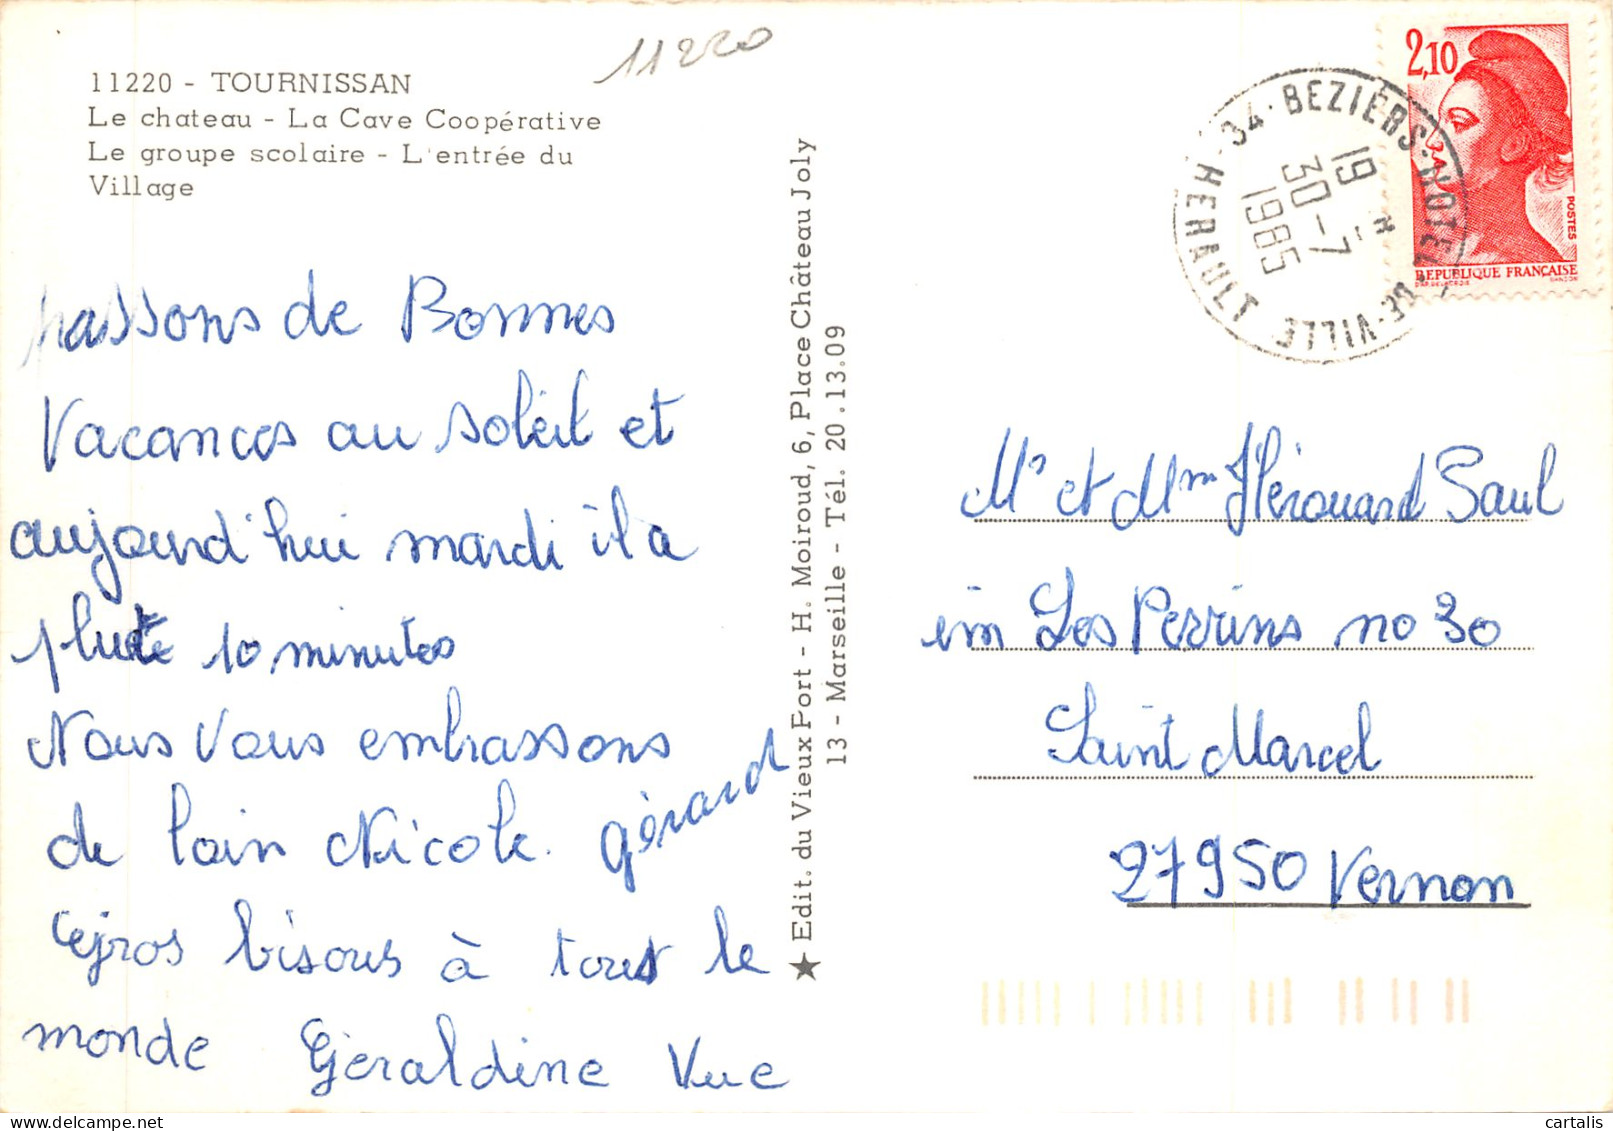 11220
11220 - TOURNISSAN
Le chateau - La Cave Coopérative
Le groupe scolaire - L'entrée du
Village
passons de Bonnes
Vacances au soleil et
aujourd'hui mardi il a
plut 10 minutes
Nous Vous embrassons
de loin Nicole. gérard
Gros bisous à tout le
monde Géraldine Vue
★ Edit. du Vieux Port - H. Moiroud, 6, Place Château Joly
13 - Marseille - Tél. 20.13.09
34 - BEZIERS-HOTEL-DE-VILLE
HERAULT
19 H
30-7
1985
2,10
POSTES
REPUBLIQUE FRANÇAISE
D'AP. DELACROIX GANDON
Mr et Mme Hérouard Saul
im Les Perrins no 30
Saint Marcel
27950 Vernon
cartalis